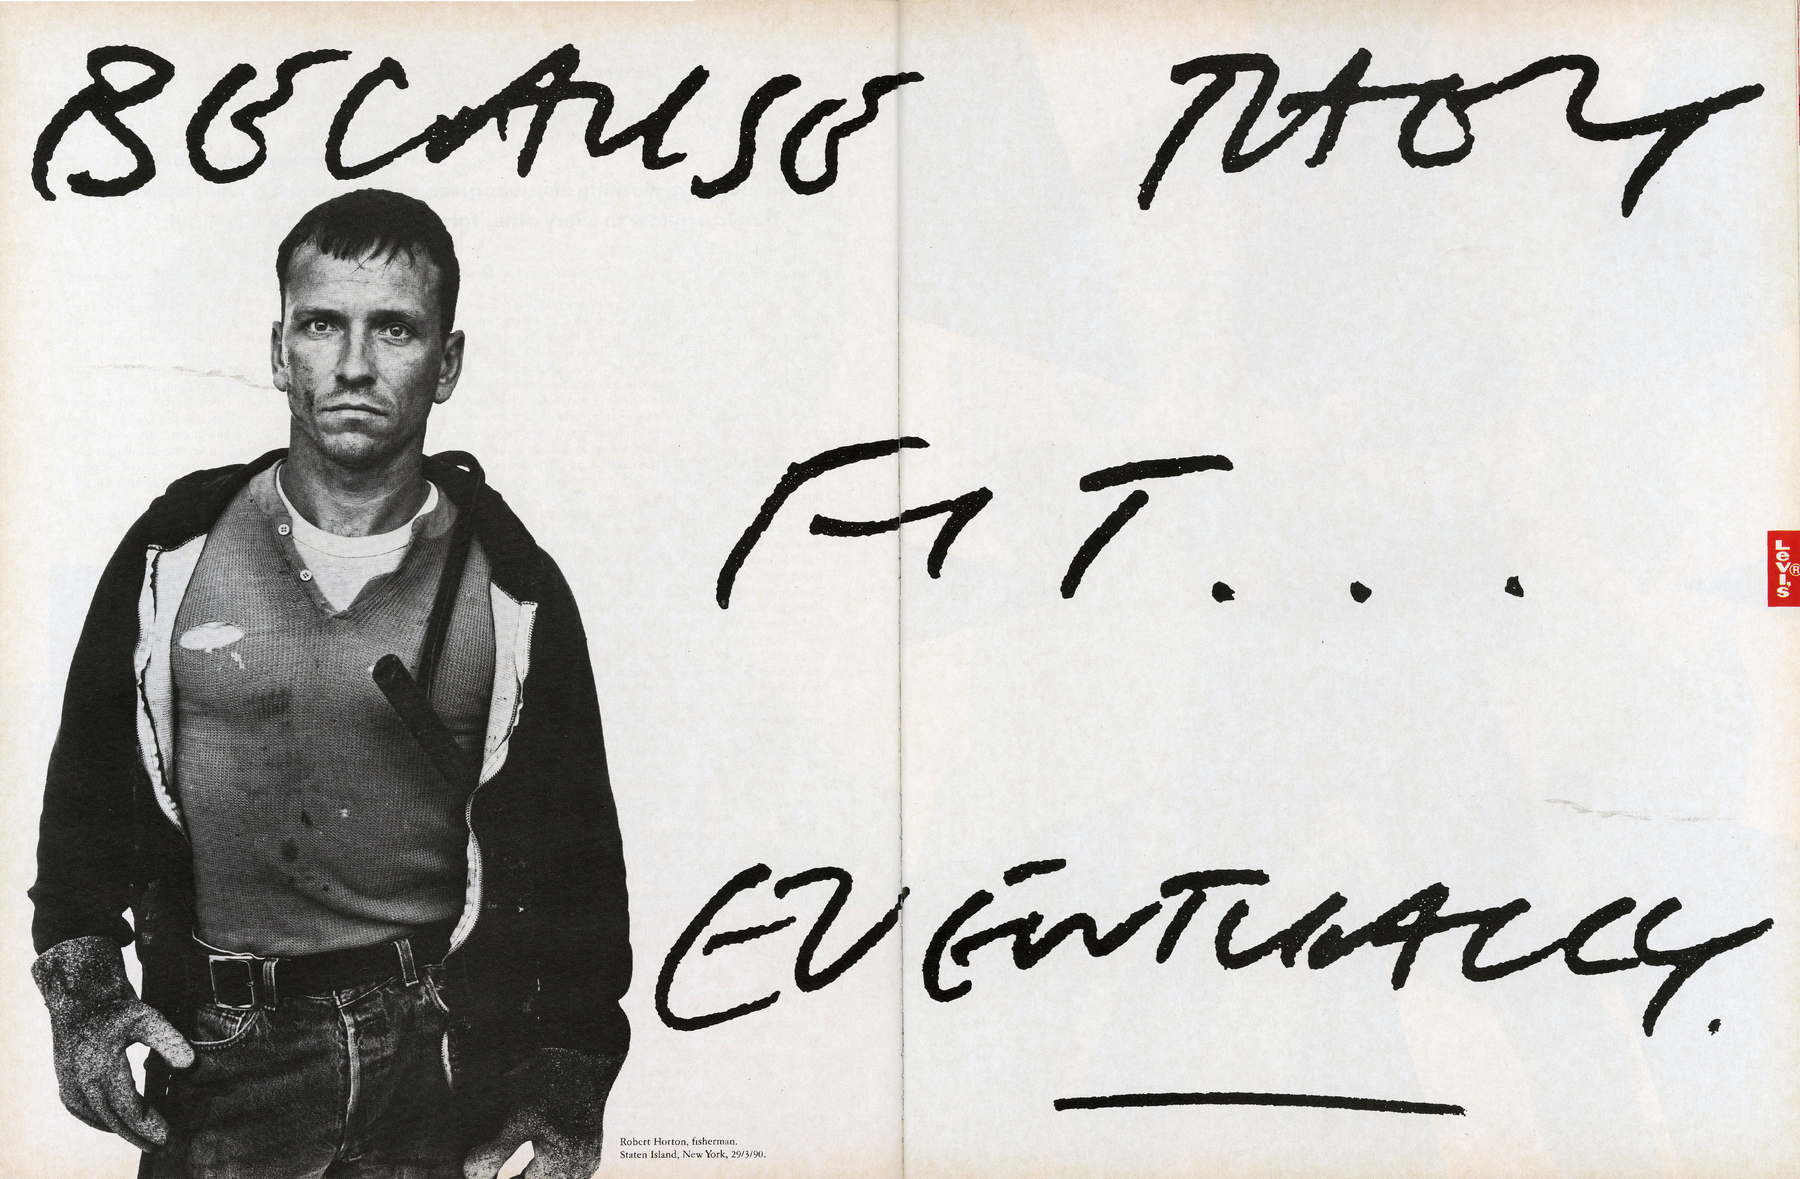 BECAUSE THEY
FIT...
Levi's®
EVENTUALLY.
Robert Horton, fisherman.
Staten Island, New York, 29/3/90.